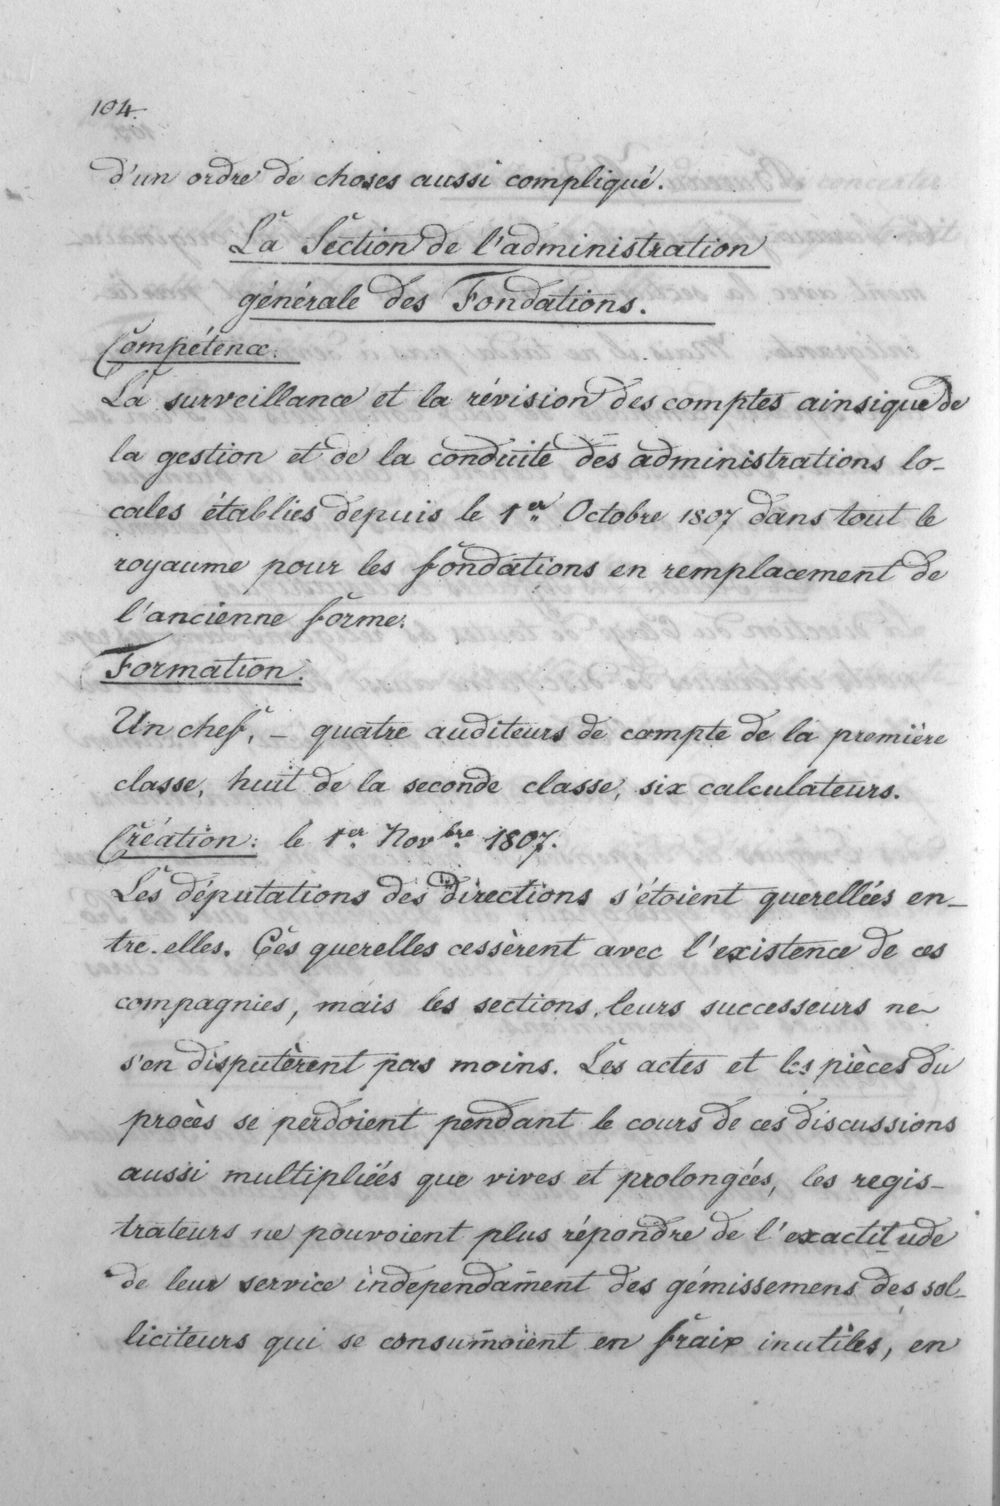 104.
d'un ordre de choses aussi compliqué.
La Section de l'administration
générale des Fondations.
Compétence.
La surveillance et la révision des comptes ainsique de
la gestion et de la conduite des administrations lo-
cales établies depuis le 1er. Octobre 1807 dans tout le
royaume pour les fondations en remplacement de
l'ancienne forme.
Formation.
Un chef, - quatre auditeurs de compte de la première
classe, huit de la seconde classe, six calculateurs.
Création: le 1er. Novbre. 1807.
Les députations des directions s'étoient querellées en-
tre-elles. Ces querelles cessèrent avec l'existence de ces
compagnies, mais les sections, leurs successeurs ne
s'en disputèrent pas moins. Les actes et les pièces du
procès se perdoient pendant le cours de ces discussions
aussi multipliées que vives et prolongées, les regis-
trateurs ne pouvoient plus répondre de l'exactitude
de leur service indépendam̄ent des gémissemens des sol-
liciteurs qui se consum̄oient en fraix inutiles, en